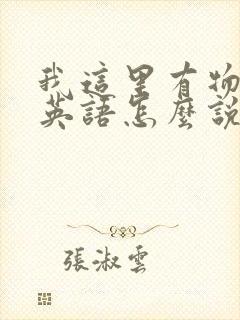 我這里有物
英語怎麼說
張淑雲